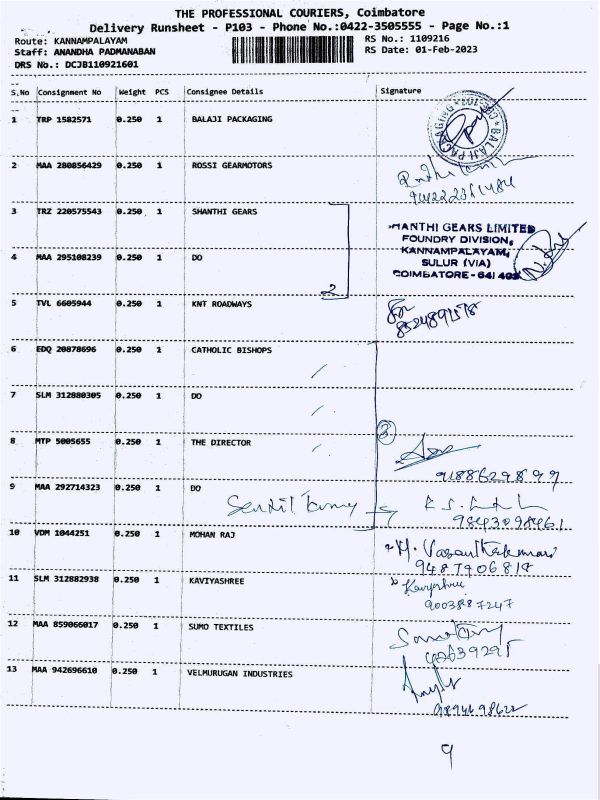 THE PROFESSIONAL COURIERS, Coimbatore
Delivery Runsheet - P103 - Phone No.:0422-3505555 - Page No.:1
Route: KANNAMPALAYAM
RS No.: 1109216
Staff: ANANDHA PADMANABAN
RS Date: 01-Feb-2023
DRS No.: DCJB110921601
S.No Consignment No Weight PCS Consignee Details Signature
1 TRP 1582571 0.250 1 BALAJI PACKAGING
BALAJI PACKAGING
2 MAA 280856429 0.250 1 ROSSI GEARMOTORS
3 TRZ 220575543 0.250 1 SHANTHI GEARS
HANTHI GEARS LIMITED
FOUNDRY DIVISION,
KANNAMPALAYAM,
SULUR (VIA)
COIMBATORE - 641 402
4 MAA 295108239 0.250 1 DO
2
5 TVL 6605944 0.250 1 KNT ROADWAYS
6 EDQ 20878696 0.250 1 CATHOLIC BISHOPS
7 SLM 312880305 0.250 1 DO
3
8 MTP 5005655 0.250 1 THE DIRECTOR
9188629899
9 MAA 292714323 0.250 1 DO
Senthil Kumar
9843098461
10 VDM 1044251 0.250 1 MOHAN RAJ
M. Vasanthakumar
9487906817
11 SLM 312882938 0.250 1 KAVIYASHREE
Kaviyashree
9003887247
12 MAA 859066017 0.250 1 SUMO TEXTILES
13 MAA 942696610 0.250 1 VELMURUGAN INDUSTRIES
9